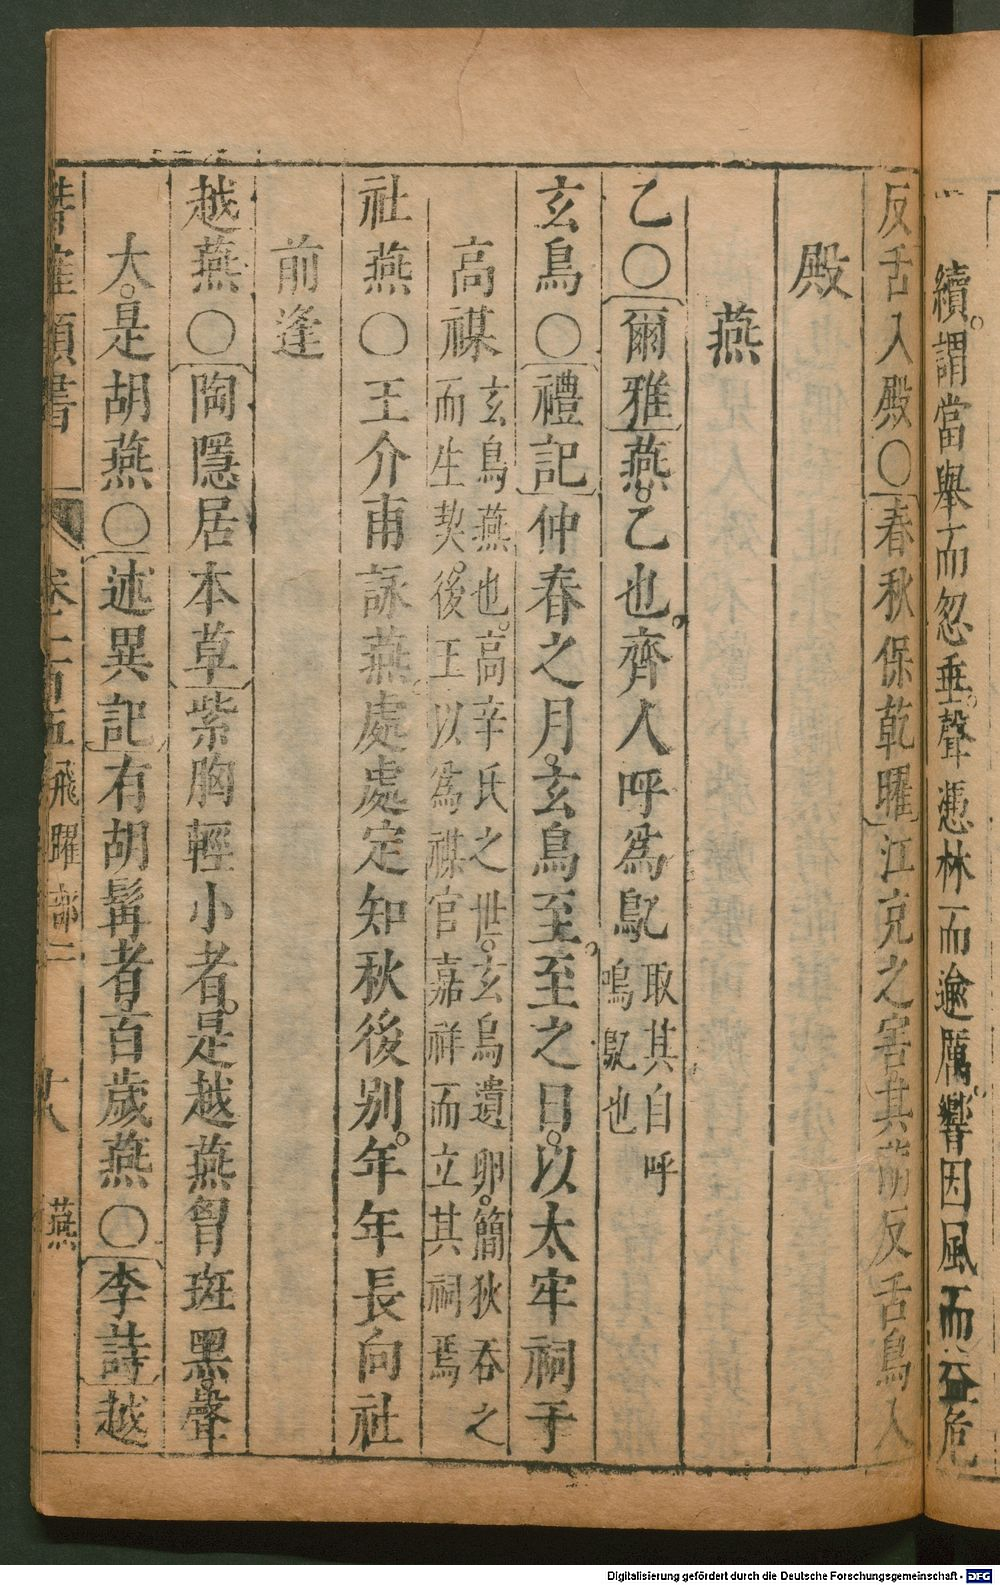 續謂當舉而忽垂聲憑林一而逾厲響因風而益危
反舌入殿〇春秋保乾曜江克之害其萠反舌鳥入
殿
燕
乙〇爾雅燕乙也齊人呼為鳦取其自呼
鳴鳦也
玄鳥〇禮記仲春之月玄鳥至至之日以太牢祠于
高禖玄鳥燕也高辛氏之世玄鳥遺卵簡狄吞之
而生契後王以為禖官嘉祥而立其祠焉
社燕〇王介甫詠燕處處定知秋後別年年長向社
前逢
越燕〇陶隱居本草紫胸輕小者是越燕胷斑黑聲
大是胡燕〇述異記有胡髯者百歲燕〇李詩越
類書 卷 百五 飛躍部二 十八 燕
Digitalisierung gefördert durch die Deutsche Forschungsgemeinschaft - DFG